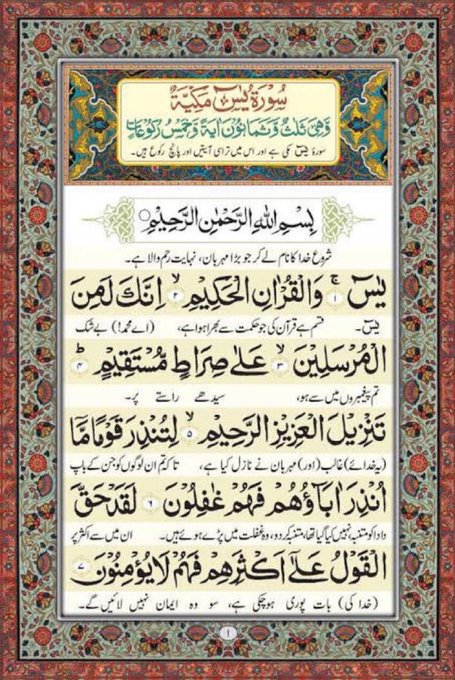 سُوْرَةُ يٰسٓ مَكِّيَّةٌ
وَّهِيَ ثَلٰثٌ وَّثَمَانُوْنَ اٰيَةً وَّخَمْسُ رُكُوْعَاتٍ
سورۂ یٰسٓ مکی ہے اور اس میں تراسی آیتیں اور پانچ رکوع ہیں۔
بِسْمِ اللّٰهِ الرَّحْمٰنِ الرَّحِيْمِ
شروع خدا کا نام لے کر جو بڑا مہربان، نہایت رحم والا ہے۔
يٰسٓ ۚ ۱ وَالْقُرْاٰنِ الْحَكِيْمِ ۙ ۲ اِنَّكَ لَمِنَ
یٰسٓ۔ قسم ہے قرآن کی جو حکمت سے بھرا ہوا ہے، (اے محمدؐ!) بے شک
الْمُرْسَلِيْنَ ۙ ۳ عَلٰى صِرَاطٍ مُّسْتَقِيْمٍ ؕ ۴
تم پیغمبروں میں سے ہو، سیدھے راستے پر۔
تَنْزِيْلَ الْعَزِيْزِ الرَّحِيْمِ ۙ ۵ لِتُنْذِرَ قَوْمًا مَّاۤ
(یہ خدائے) غالب (اور) مہربان نے نازل کیا ہے، تاکہ تم ان لوگوں کو جن کے باپ
اُنْذِرَ اٰبَآؤُهُمْ فَهُمْ غٰفِلُوْنَ ۶ لَقَدْ حَقَّ
دادا کو متنبہ نہیں کیا گیا تھا، متنبہ کر دو، وہ غفلت میں پڑے ہوئے ہیں۔ ان میں سے اکثر پر
الْقَوْلُ عَلٰۤى اَكْثَرِهِمْ فَهُمْ لَا يُؤْمِنُوْنَ ۷
(خدا کی) بات پوری ہو چکی ہے، سو وہ ایمان نہیں لائیں گے۔
۱